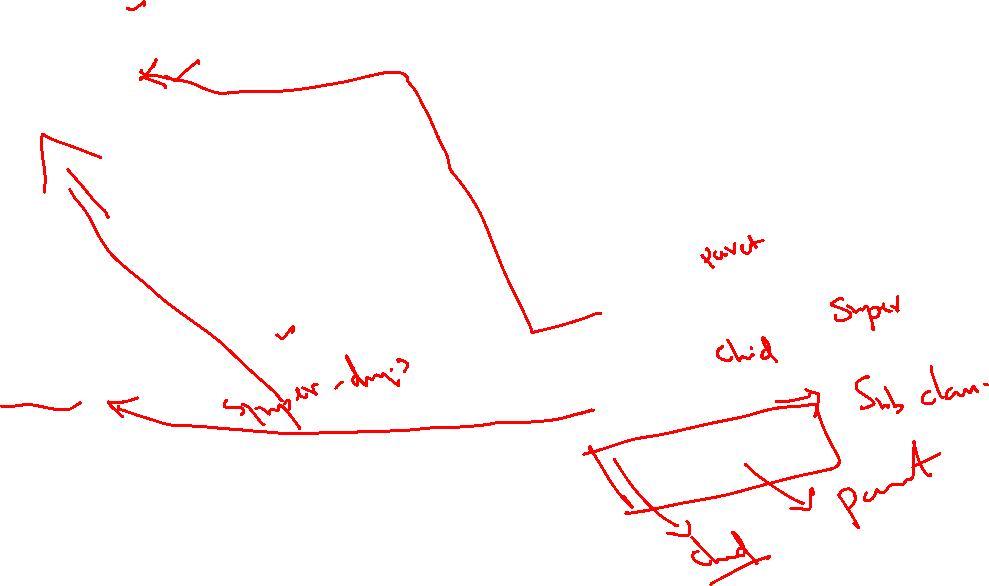 paret
Super
Chid
super
Sub clam.
parent
chid